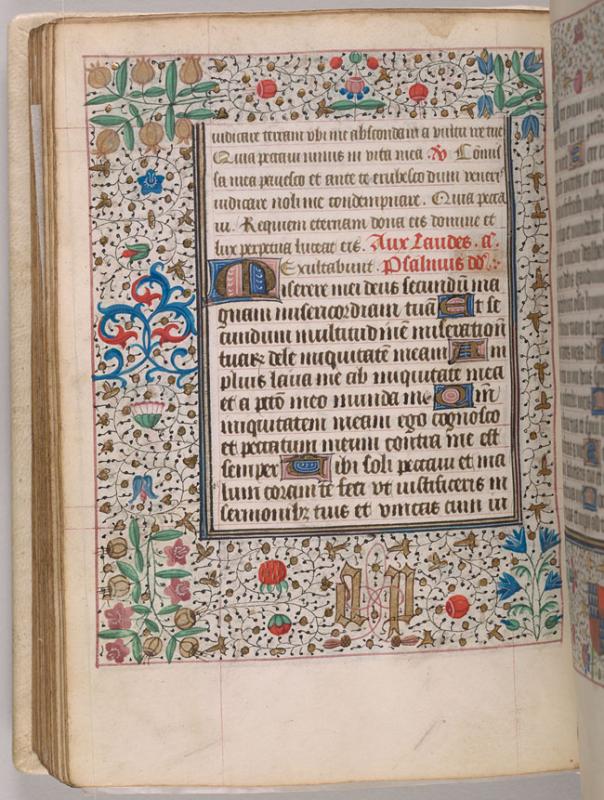 iudicare terram vbi me abscondam a vultu ire tue
Quia peccaui nimis in vita mea. V̉ Cōmis
sa mea pauesco et ante te erubesco dum vener̄
iudicare noli me condempnare. Quia pecca
ui. Requiem eternam dona eis domine et
lux perpetua luceat eis. Aux Laudes. a.
Exultabunt. Psalmus dd.
Miserere mei deus secundū ma
gnam misericordiam tuā Et se
cundum multitudinē miseration
tuaꝝ dele iniquitatē meam Am
plius laua me ab iniquitate mea
et a pcc̄o meo munda me Qm̄
iniquitatem meam ego cognosco
et peccatum meum contra me est
semper Tibi soli peccaui et ma
lum coram te feci vt iustificeris in
sermonibꝫ tuis et vincas cum iu
a p